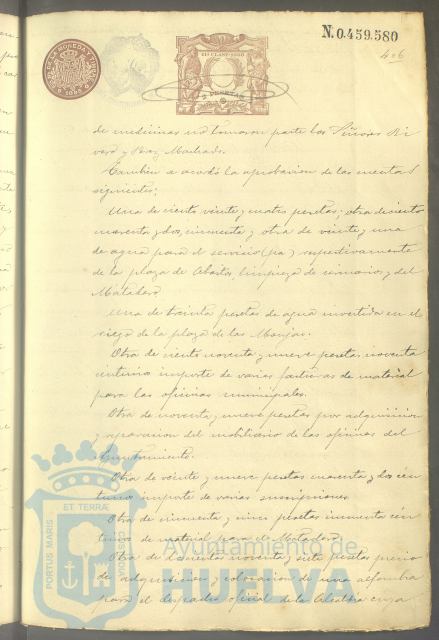 N.0.459.580
406
11ª CLASE-1890
2 PESETAS
de medicinas no tomaron parte los Señores Ri
vero y Perez Machado.
Tambien se acordó la aprobacion de las cuentas
siguientes:
Una de ciento veinte y cuatro pesetas; otra de ciento
cuarenta y dos, cincuenta y otra de veinte y una
de agua para el servicio respectivamente
de la plaza de Abastos, limpieza de y del
Matadero.
Una de treinta pesetas de agua invertida en el
riego de la plaza de las Monjas.
Otra de ciento noventa y nueve pesetas noventa
centimos importe de varias partidas de material
para las oficinas municipales.
Otra de noventa y nueve pesetas por adquisicion
y reparacion del mobiliario de las oficinas del
Ayuntamiento.
Otra de veinte y nueve pesetas cuarenta y dos cén
timos importe de varias suscripciones.
Otra de cincuenta y cinco pesetas cincuenta cén
timos de material para el Matadero.
Otra de doscientas noventa y siete pesetas precio
de adquisicion y colocacion de una alfombra
para el despacho oficial de la Alcaldia cuya
PORTUS MARIS ET TERRAE CUSTODIA
Ayuntamiento de
HUELVA